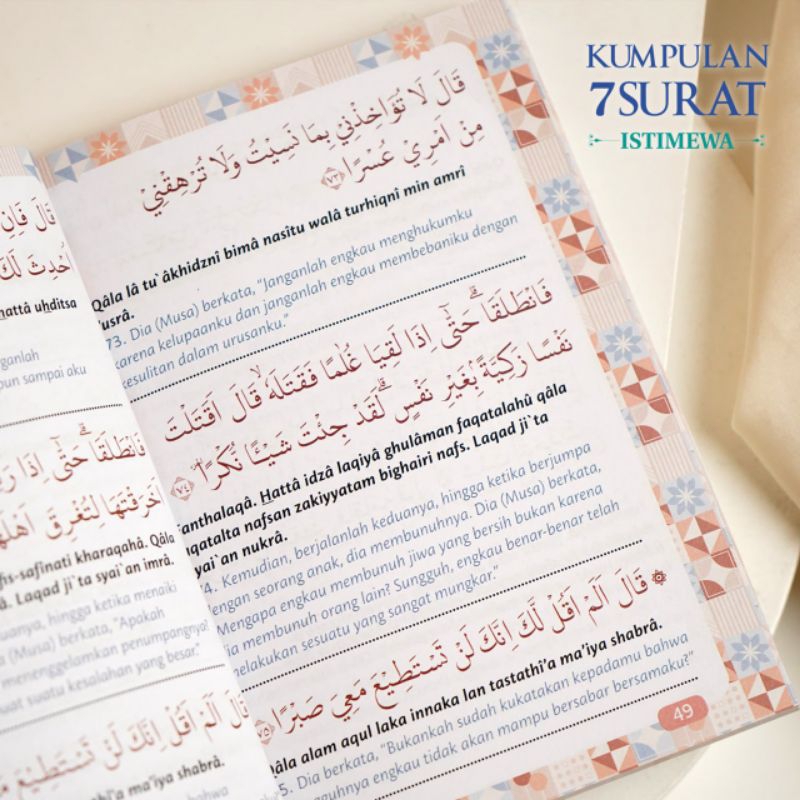 KUMPULAN
7SURAT
ISTIMEWA
قَالَ لَا تُؤَاخِذْنِيْ بِمَا نَسِيْتُ وَلَا تُرْهِقْنِيْ
مِنْ اَمْرِيْ عُسْرًا ٧٣
Qâla lâ tu`âkhidznî bimâ nasîtu walâ turhiqnî min amrî
'usrâ.
73. Dia (Musa) berkata, “Janganlah engkau menghukumku
karena kelupaanku dan janganlah engkau membebaniku dengan
kesulitan dalam urusanku.”
فَانْطَلَقَاۗ حَتّٰىٓ اِذَا لَقِيَا غُلٰمًا فَقَتَلَهٗ ۙقَالَ اَقَتَلْتَ
نَفْسًا زَكِيَّةً ۢبِغَيْرِ نَفْسٍۗ لَقَدْ جِئْتَ شَيْـًٔا نُكْرًا ٧٤
Fanthalaqâ. Hattâ idzâ laqiyâ ghulâman faqatalahû qâla
aqatalta nafsan zakiyyatam bighairi nafs. Laqad ji`ta
syai`an nukrâ.
74. Kemudian, berjalanlah keduanya, hingga ketika berjumpa
dengan seorang anak, dia membunuhnya. Dia (Musa) berkata,
“Mengapa engkau membunuh jiwa yang bersih bukan karena
dia membunuh orang lain? Sungguh, engkau benar-benar telah
melakukan sesuatu yang sangat mungkar.”
۞ قَالَ اَلَمْ اَقُلْ لَّكَ اِنَّكَ لَنْ تَسْتَطِيْعَ مَعِيَ صَبْرًا ٧٥
Qâla alam aqul laka innaka lan tastathî'a ma'iya shabrâ.
75. Dia berkata, “Bukankah sudah kukatakan kepadamu bahwa
sungguhnya engkau tidak akan mampu bersabar bersamaku?”
49
قَالَ فَاِنِ
اُحْدِثَ لَكَ
hattâ uhditsa
anganlah
pun sampai aku
فَانْطَلَقَاۗ حَتّٰىٓ اِذَا
اَخَرَقْتَهَا لِتُغْرِقَ اَهْلَهَا
fis-safînati kharaqahâ. Qâla
Laqad ji`ta syai`an imrâ.
keduanya, hingga ketika menaiki
(Musa) berkata, “Apakah
menenggelamkan penumpangnya?
suatu kesalahan yang besar.”
قَالَ اَلَمْ اَقُلْ اِنَّكَ لَنْ تَسْتَطِيْعَ
tastathî'a ma'iya shabrâ.
bahwa